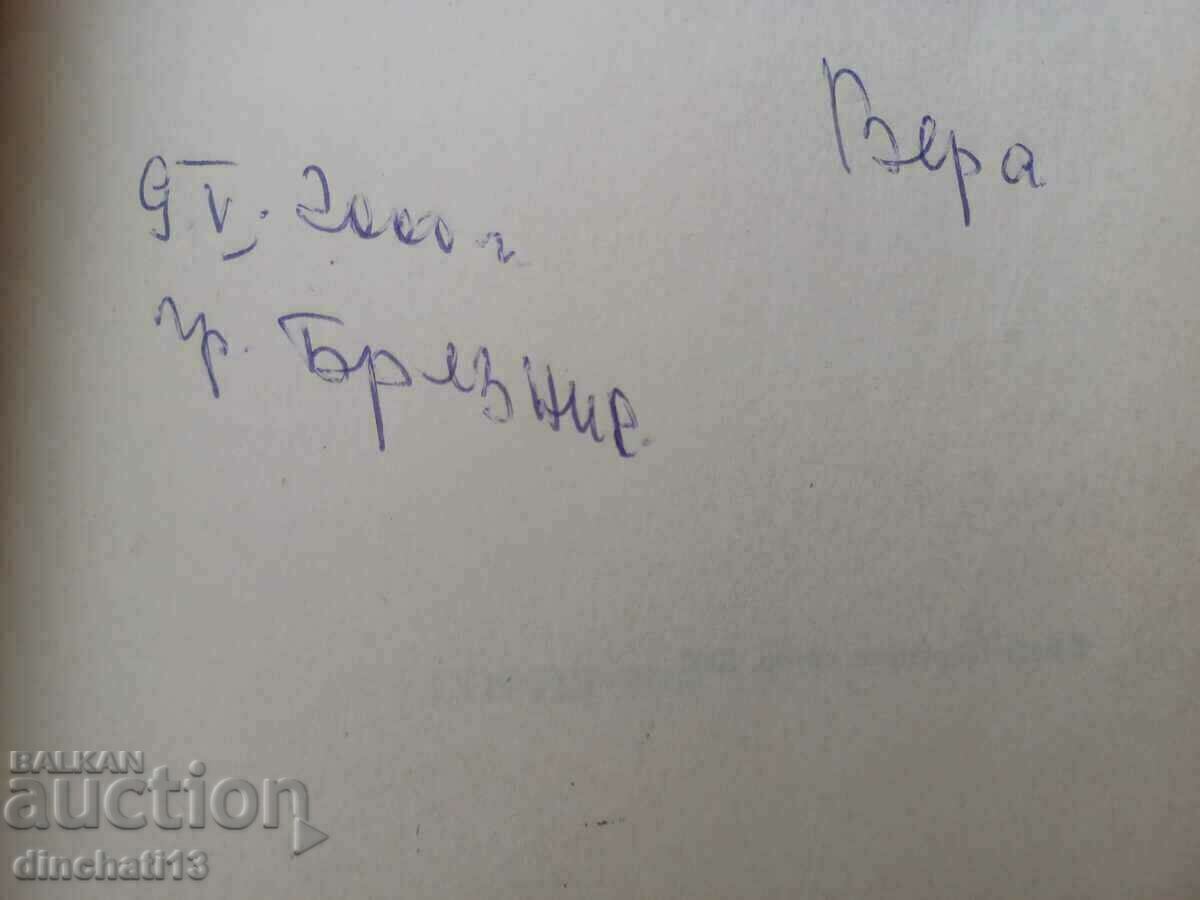 Вера
9 V. 2000 г
гр. Брезник.
BALKAN
auction
dinchati13